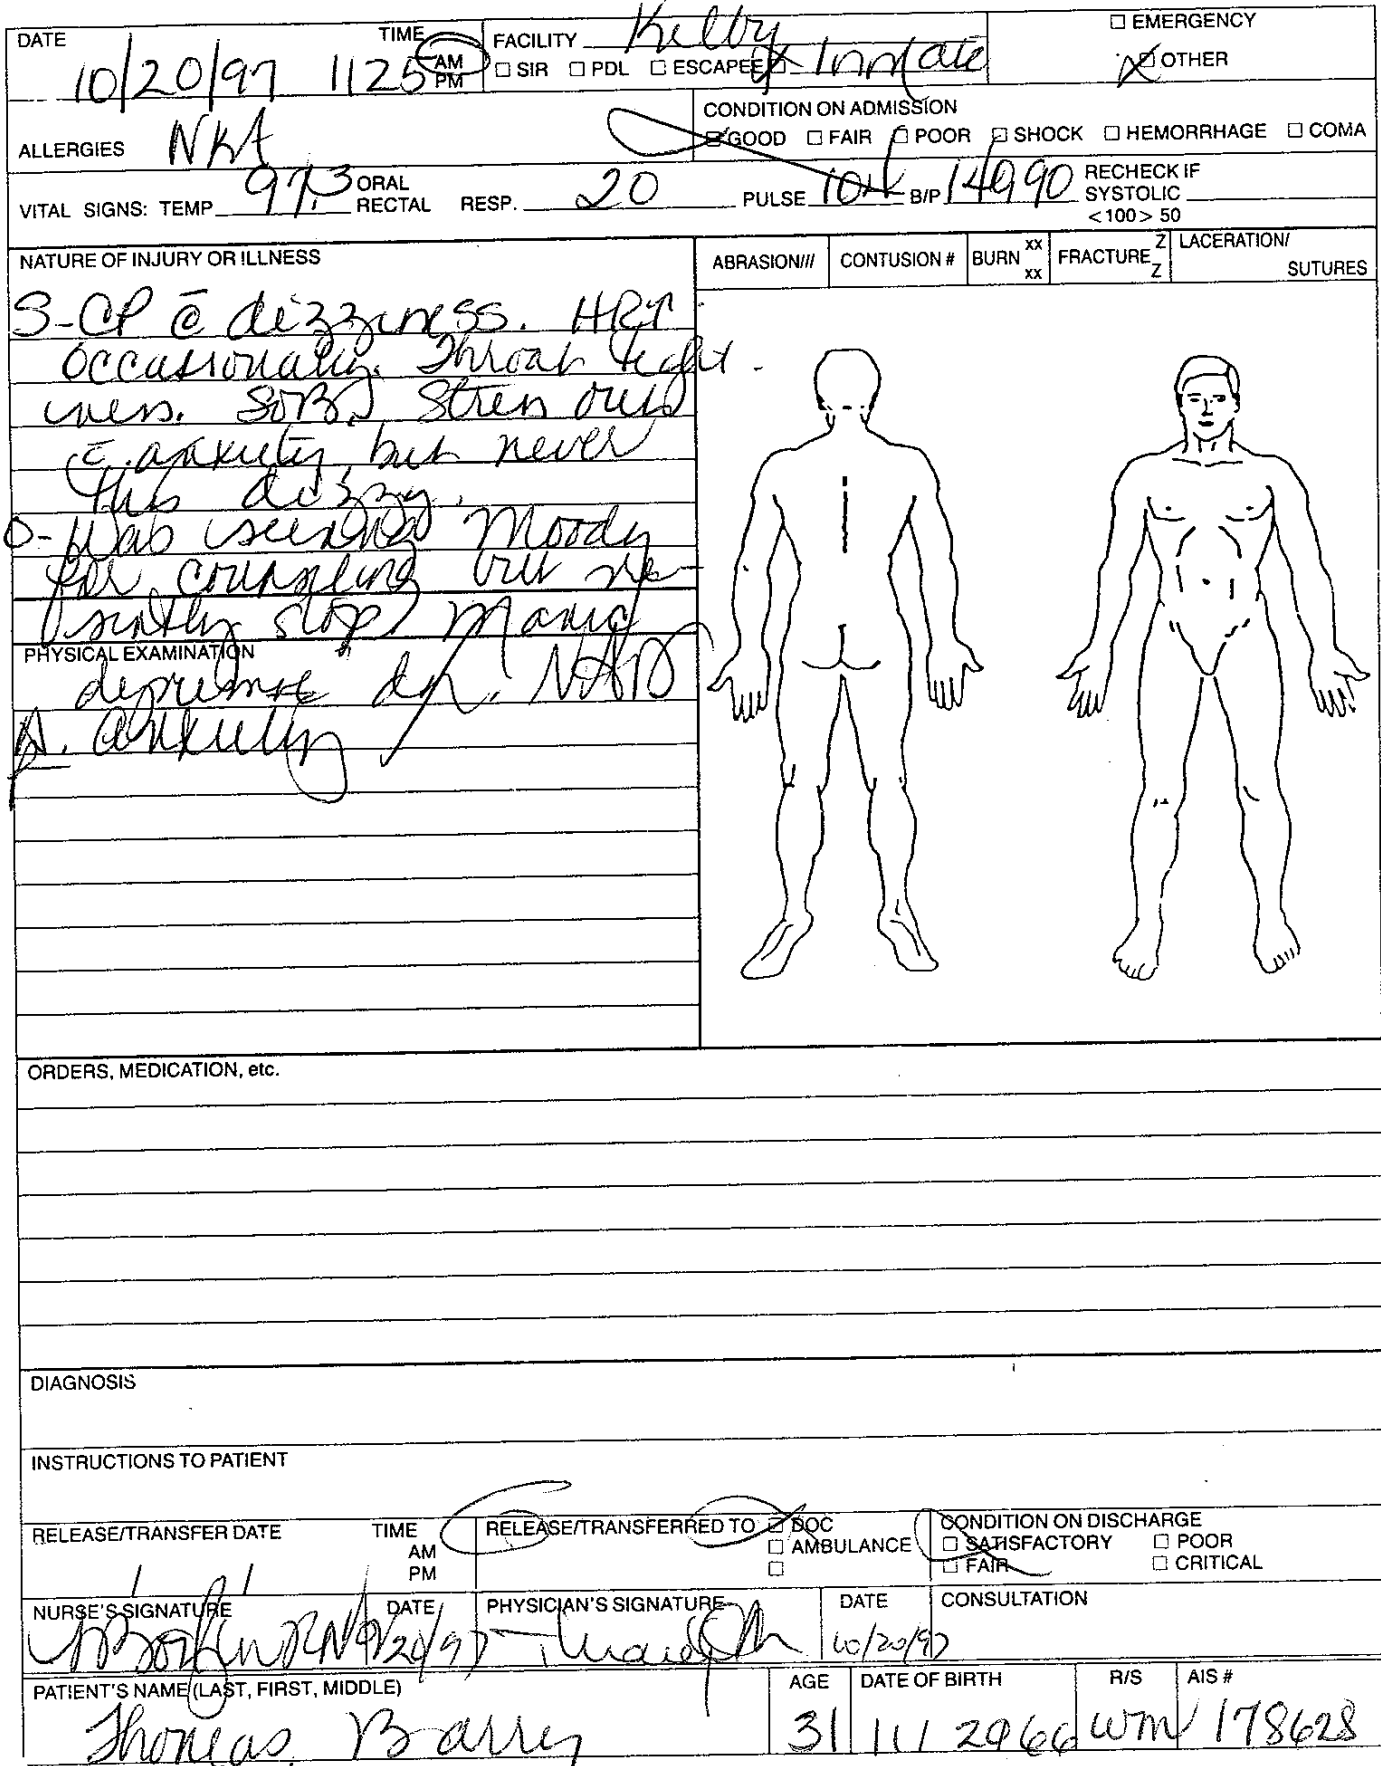 DATE TIME FACILITY Kilby □ EMERGENCY
10/20/97 1125 AM PM □ SIR □ PDL □ ESCAPEE X Inmate X OTHER
ALLERGIES NKA CONDITION ON ADMISSION
□ GOOD □ FAIR □ POOR □ SHOCK □ HEMORRHAGE □ COMA
VITAL SIGNS: TEMP 97.3 ORAL RECTAL RESP. 20 PULSE 104 B/P 140/90 RECHECK IF SYSTOLIC <100> 50
NATURE OF INJURY OR ILLNESS ABRASION/// CONTUSION # BURN xx xx FRACTURE Z Z LACERATION/ SUTURES
S-CP c̄ dizziness. HR↑
occassionally. Throat tight
ness. SOB. Stress out
c̄ anxiety, but never
this dizzy.
O- Was seeing Moody
for counseling but re-
sently stop. Manic
PHYSICAL EXAMINATION
depressive dx. NAD
A. anxiety
ORDERS, MEDICATION, etc.
DIAGNOSIS
INSTRUCTIONS TO PATIENT
RELEASE/TRANSFER DATE TIME AM PM RELEASE/TRANSFERRED TO □ DOC □ AMBULANCE □ CONDITION ON DISCHARGE
□ SATISFACTORY □ POOR
□ FAIR □ CRITICAL
/ /
NURSE'S SIGNATURE DATE PHYSICIAN'S SIGNATURE DATE CONSULTATION
RN 10/20/97 10/20/97
PATIENT'S NAME (LAST, FIRST, MIDDLE) AGE DATE OF BIRTH R/S AIS #
Thomas, Barry 31 wm 178628